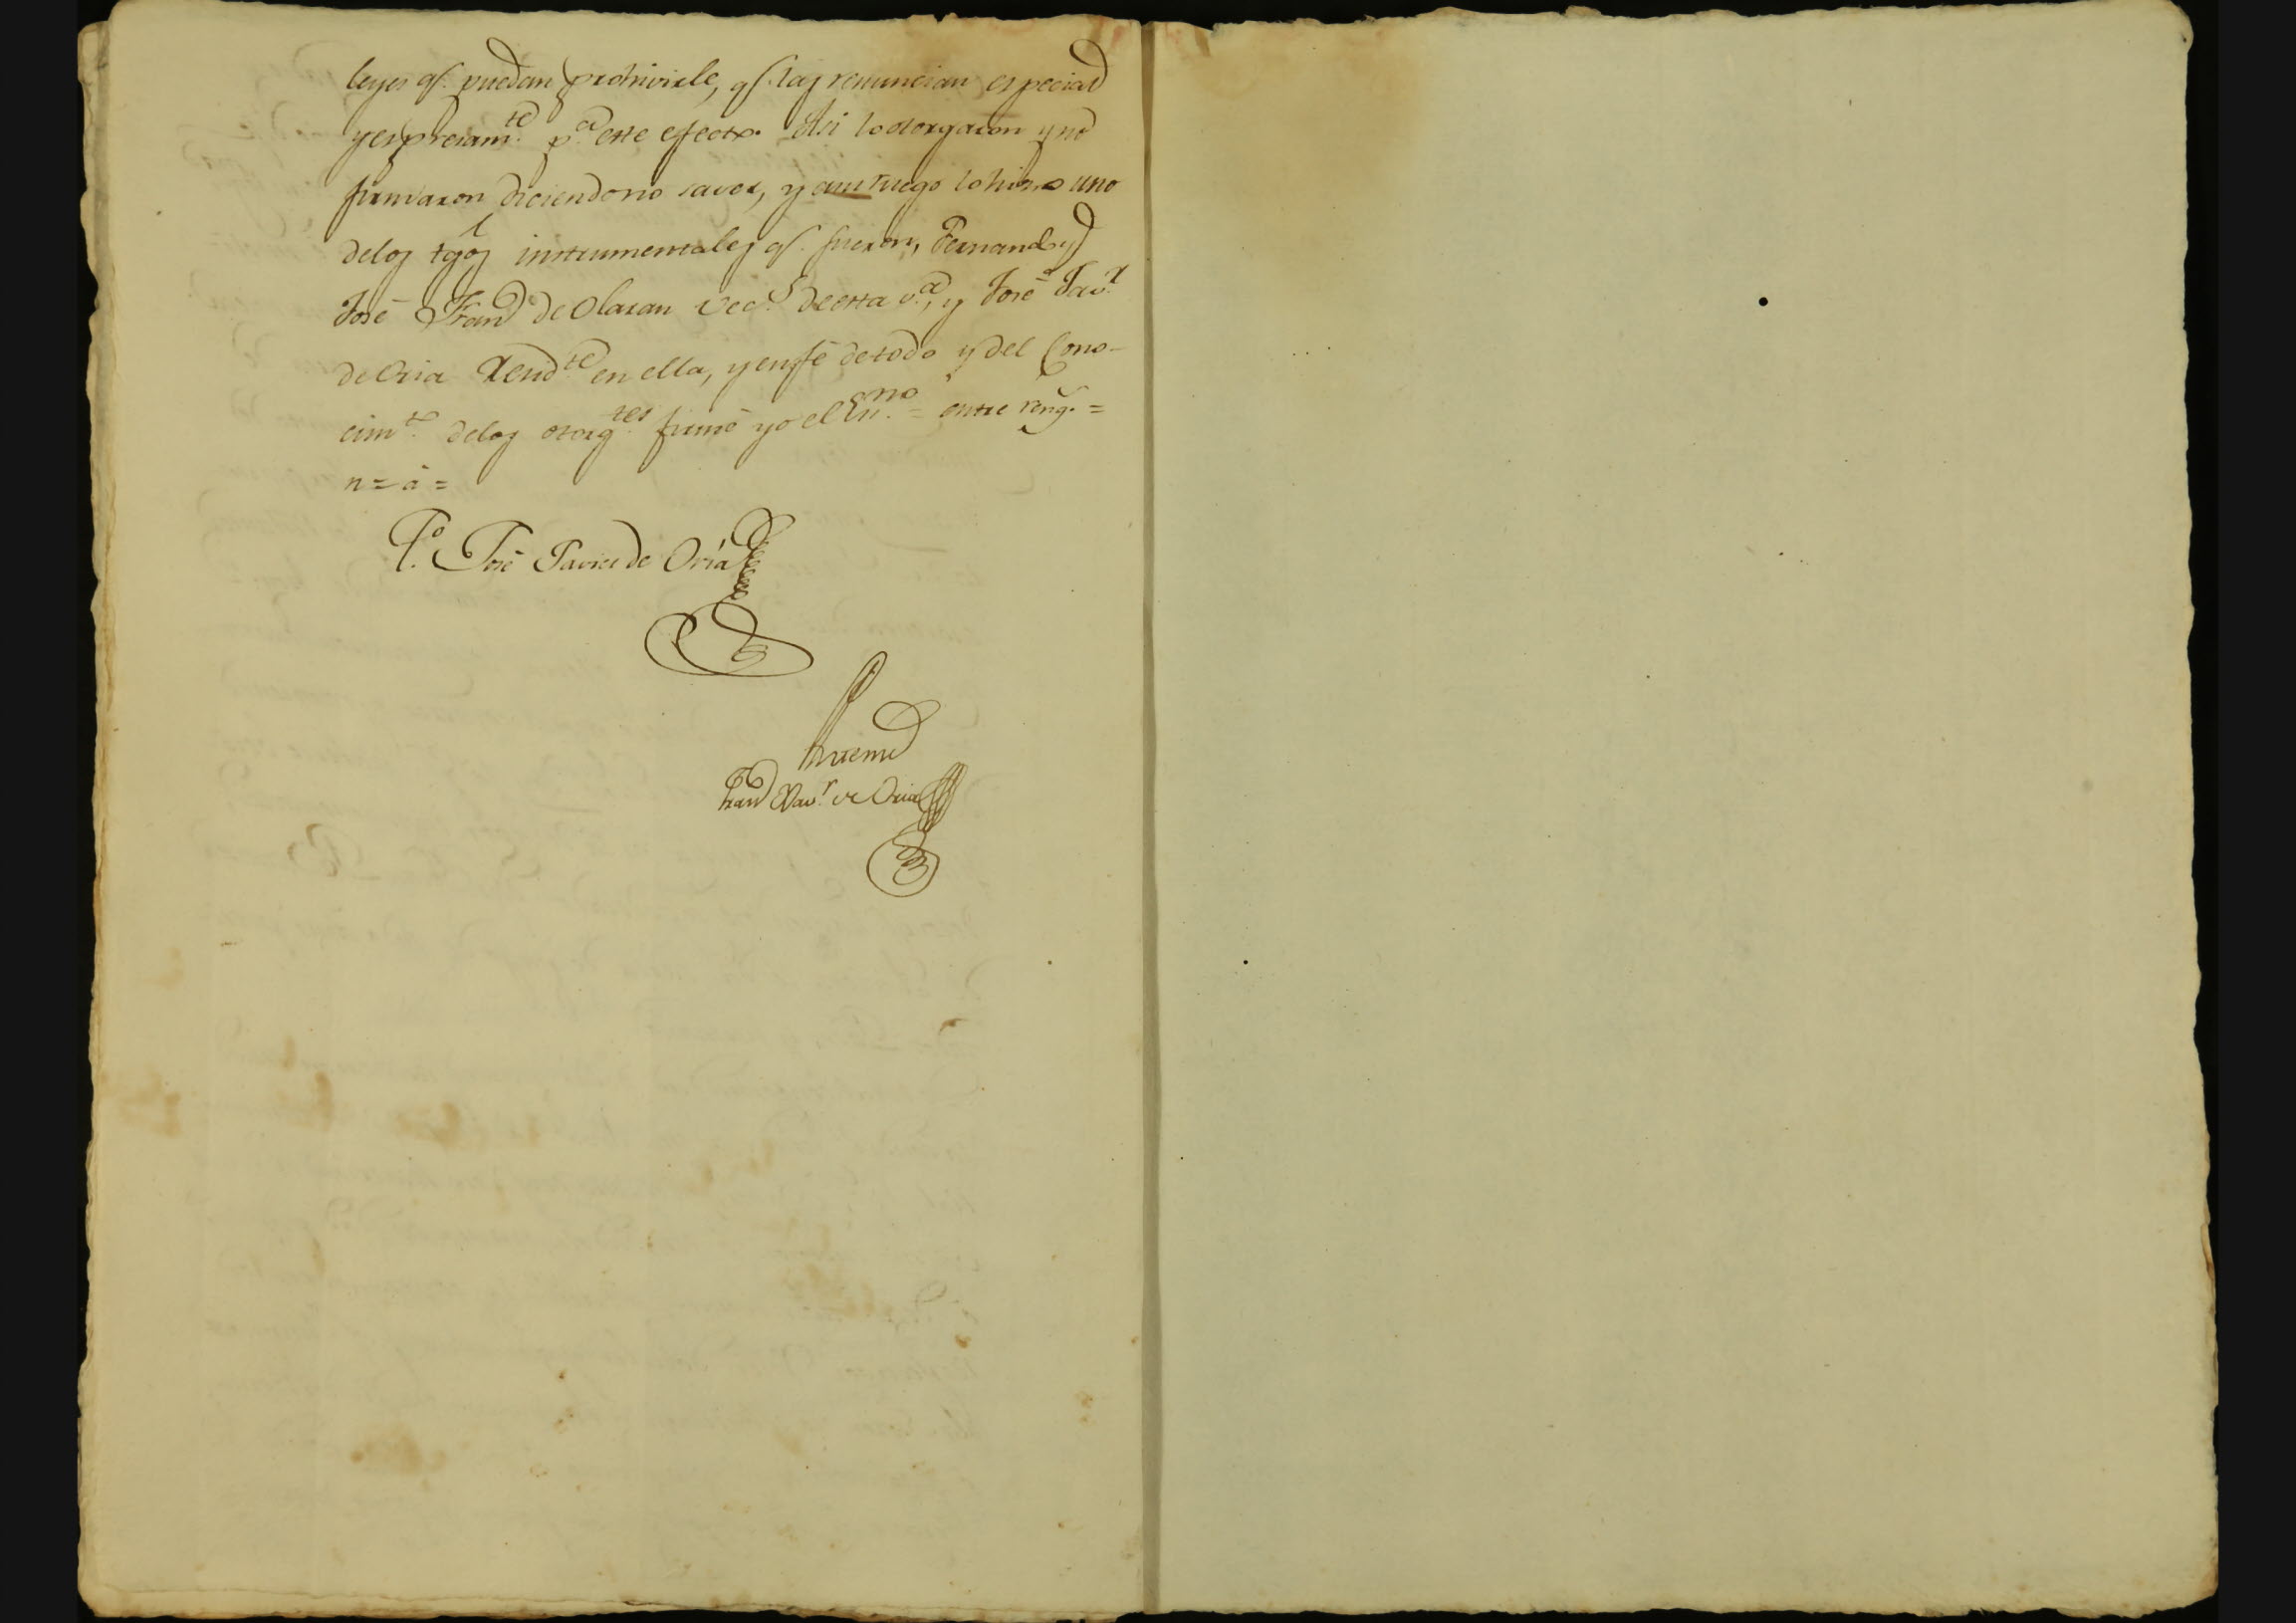 leyes q.e puedan prohivirle, q.e las renuncian especial
y expresam.te p.a este efecto. Asi lo otorgaron y no
firmaron diciendo no saver, y a su ruego lo hizo uno
delos tgōs instrumentales q.e fueron, Fernando y
José Fran.co de Olaran vec.s de esta v.a, y José Jav.r
de Oria resid.te en ella, y en fé de todo y del Cono-
cim.to delos otorg.tes firmé yo el Ess.no = entre reng.s =
n = a =
T.o José Javier de Oria
Ante mi
Fran.co Xav.r de Oria